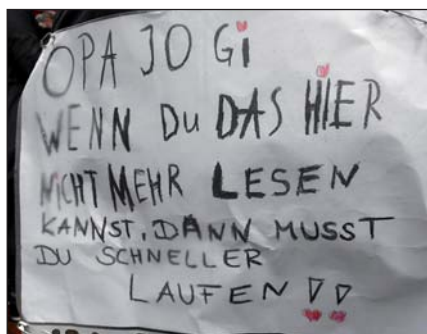 OPA JOGi
WENN DU DAS HIER
NiCHT MEHR LESEN
KANNST, DANN MUSST
DU SCHNELLER
LAUFEN !!